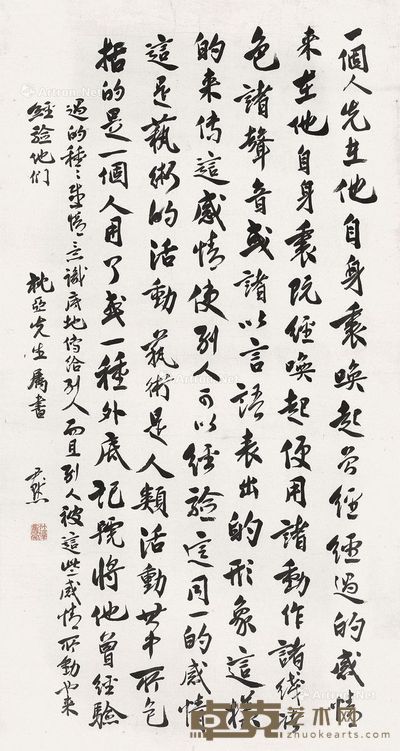 一個人先在他自身裏喚起曾經經過的感情
來在他自身裏既經喚起便用諸動作諸線諸
色諸聲音或諸以言語表出的形象這樣
的來傳這感情使別人可以經驗這同一的感情
這是藝術的活動藝術是人類活動其中所包
括的是一個人用了或一種外底記號將他曾經驗
過的種種感情意識底地傳給別人而且別人被這些感情所動也來
經驗他們
桃亞先生屬書
尹默
Artron.Net
卓克艺术网
zhuokearts.com